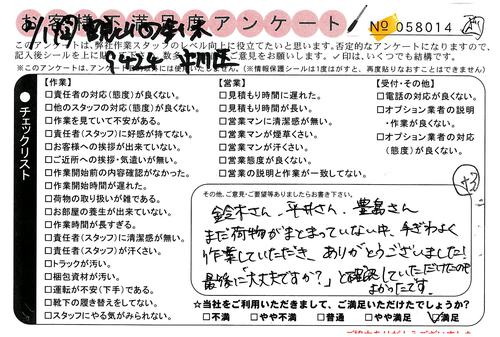 お客様不満足度アンケート
№ 058014
このアンケートは、弊社作業スタッフのレベル向上に役立てたいと思います。否定的なアンケートになりますので、
記入後シールを上に貼 ご意見をお願いします。✓印は、いくつでも結構です。
※このアンケートは、アンケート 以外には使用いたしません。(情報保護シールは1度はがすと、再度貼りなおすことはできません)
チェックリスト
【作業】
□責任者の対応(態度)が良くない。
□他のスタッフの対応(態度)が良くない。
□作業を見ていて不安がある。
□責任者(スタッフ)に好感が持てない。
□お客様への挨拶が出来ていない。
□ご近所への挨拶・気遣いが無い。
□作業開始前の内容確認がなかった。
□作業開始時間が遅れた。
□荷物の取り扱いが雑である。
□お部屋の養生が出来ていない。
□作業時間が長すぎる。
□責任者(スタッフ)に清潔感が無い。
□責任者(スタッフ)が汗くさい。
□トラックが汚い。
□梱包資材が汚い。
□運転が不安(下手)である。
□靴下の履き替えをしてない。
□スタッフにやる気がみられない。
【営業】
□見積もり時間に遅れた。
□見積もり時間が長い。
□営業マンに清潔感が無い。
□営業マンが煙草くさい。
□営業マンが汗くさい。
□営業態度が良くない。
□営業の説明と作業が一致してない。
【受付・その他】
□電話の対応が良くない。
□オプション業者の説明
・作業が良くない。
□オプション業者の対応
(態度)が良くない。
その他、ご意見・ご要望等ありましたらお書き下さい。
鈴木さん、平井さん、豊島さん
まだ荷物がまとまっていない中、手ぎわよく
作業していただき、ありがとうございました!
最後に「大丈夫ですか?」と確認していただけたので
よかったです。
☆当社をご利用いただきまして、ご満足いただけたでしょうか?
□不満 □やや不満 □普通 □やや満足 ☑満足